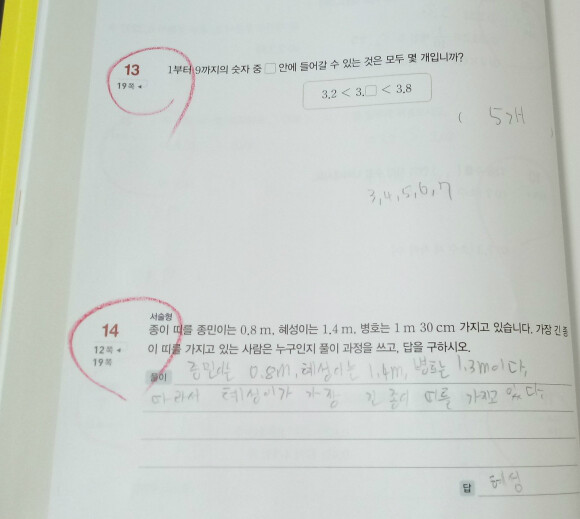 13
19쪽
1부터 9까지의 숫자 중 □ 안에 들어갈 수 있는 것은 모두 몇 개입니까?
3.2 < 3.□ < 3.8
( 5개 )
3,4,5,6,7
서술형
14
12쪽
19쪽
종이 띠를 종민이는 0.8 m, 혜성이는 1.4 m, 병호는 1 m 30 cm 가지고 있습니다. 가장 긴 종
이 띠를 가지고 있는 사람은 누구인지 풀이 과정을 쓰고, 답을 구하시오.
풀이 종민이는 0.8m, 혜성이는 1.4m, 병호는 1.3m이다.
따라서 혜성이가 가장 긴 종이 띠를 가지고 있다.
답 혜성